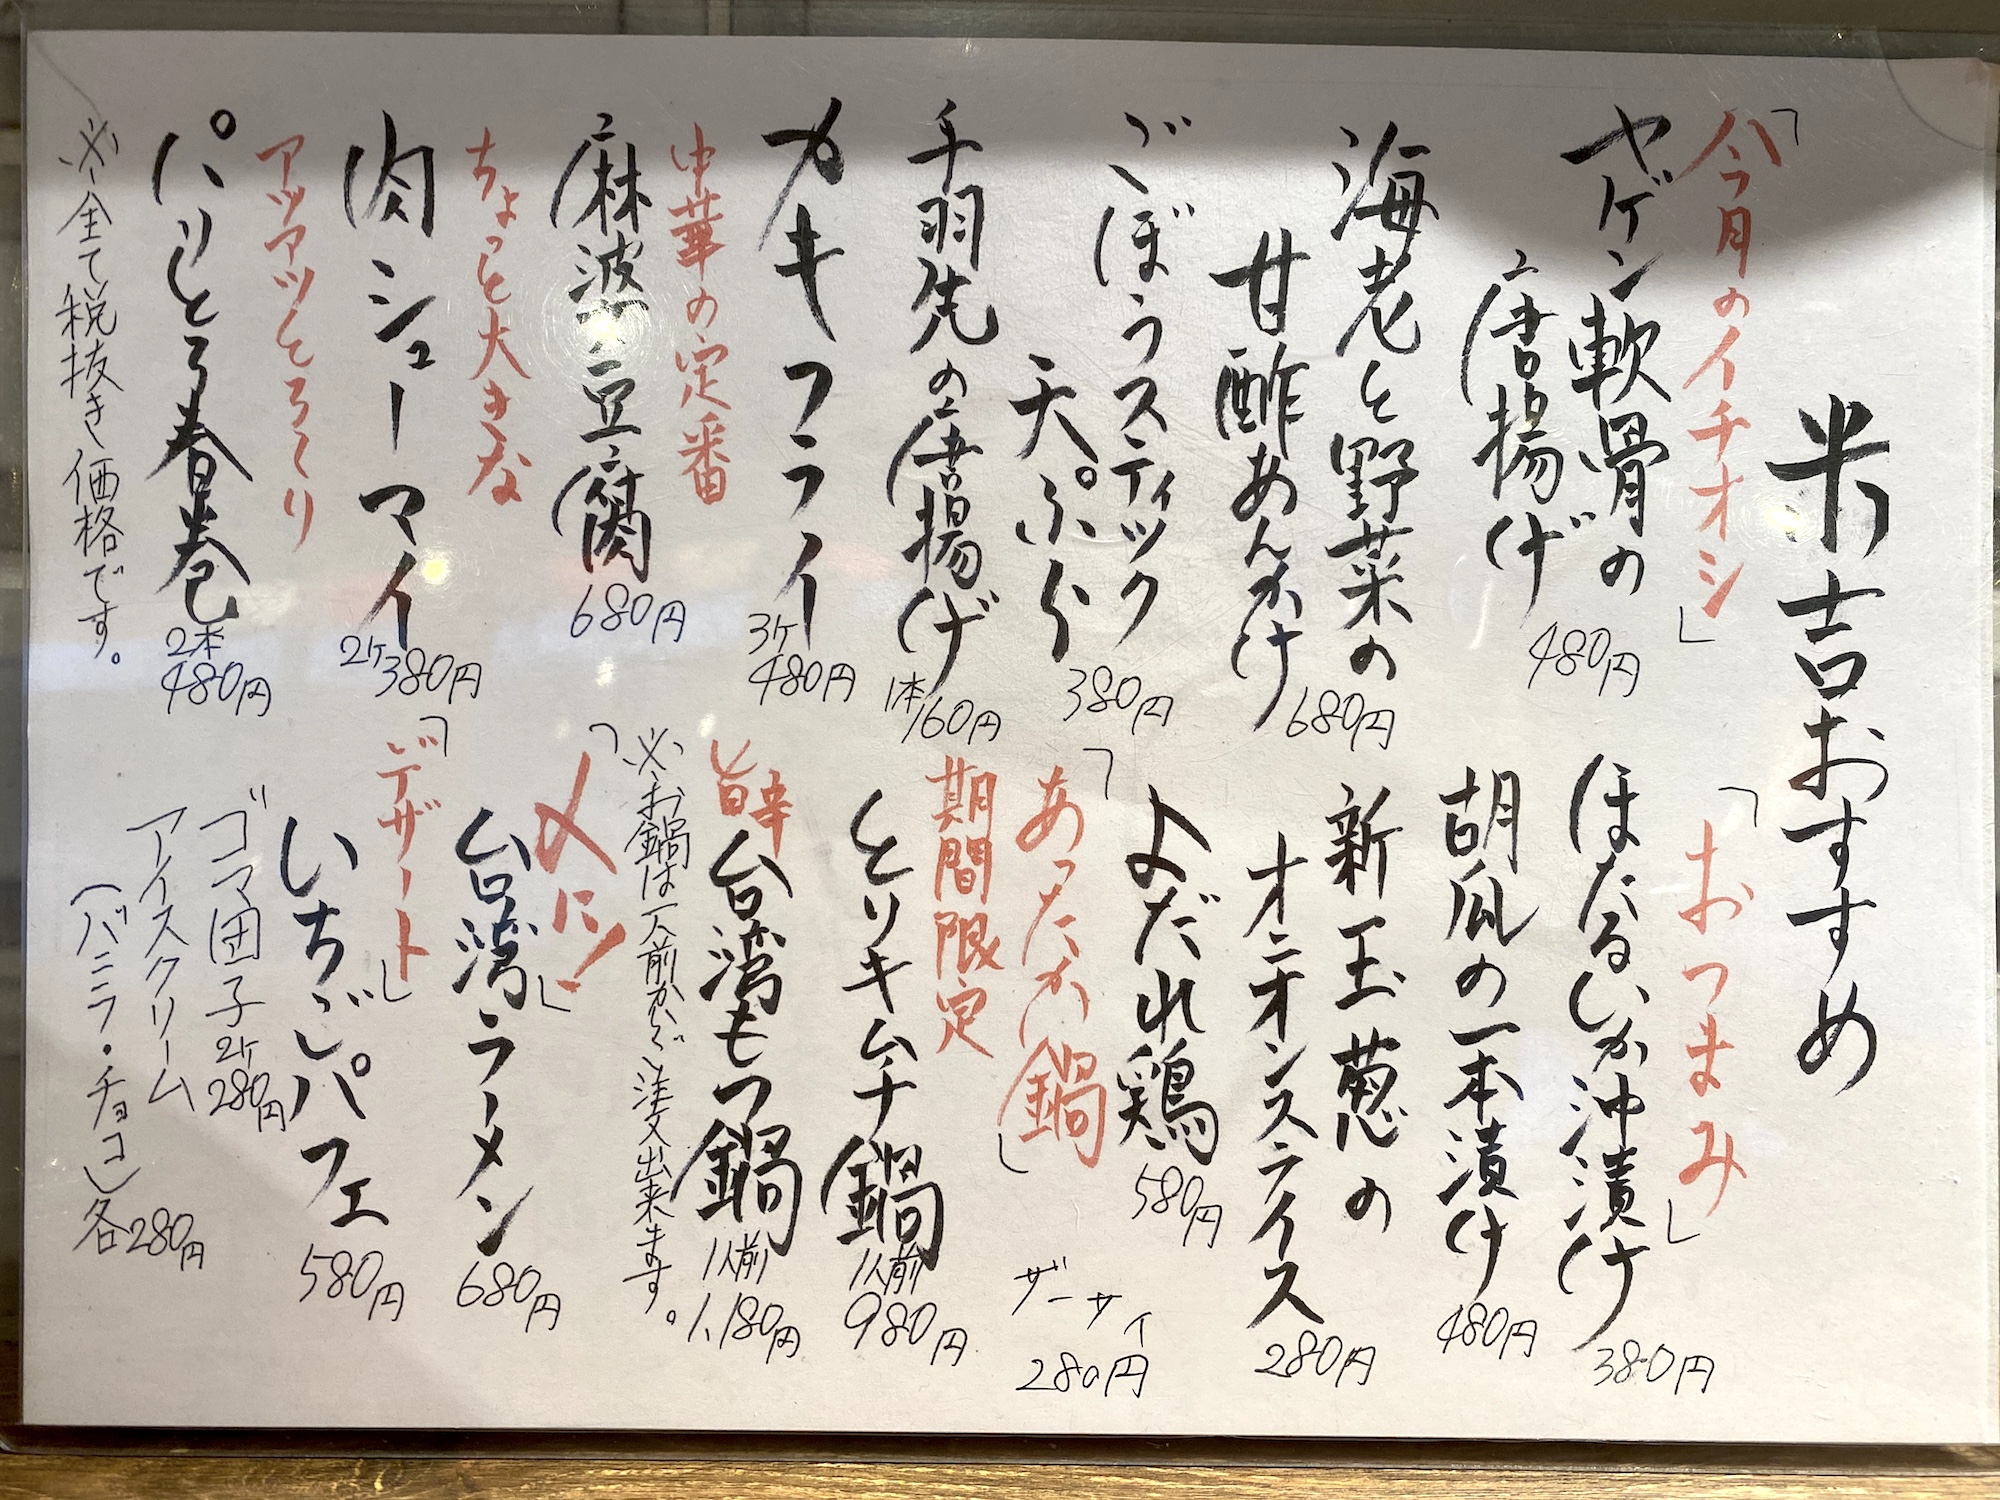 米吉おすすめ
「今月のイチオシ」
ヤゲン軟骨の
唐揚げ
480円
海老と野菜の
甘酢あんかけ
680円
ごぼうスティック
天ぷら
380円
手羽先の唐揚げ
1本160円
カキフライ
3ケ
480円
中華の定番
麻婆豆腐
680円
ちょっと大きな
肉シューマイ
2ケ380円
アツアツとろ〜り
パリとろ春巻
2本
480円
※全て税抜き価格です。
「おつまみ」
ほたるいか沖漬け
380円
胡瓜の一本漬け
480円
新玉葱の
オニオンスライス
280円
よだれ鶏
580円
ザーサイ
280円
「あったか鍋」
期間限定
とりキムチ鍋
1人前
980円
旨辛
台湾もつ鍋
1人前
1,180円
※お鍋は一人前からご注文出来ます。
「〆に!」
台湾ラーメン
680円
「デザート」
いちごパフェ
580円
ゴマ団子
2ケ
280円
アイスクリーム
(バニラ・チョコ)各280円